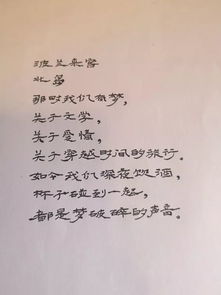 波兰来客
北岛
那时我们有梦，
关于文学，
关于爱情，
关于穿越时间的旅行。
如今我们深夜饮酒，
杯子碰到一起，
都是梦破碎的声音。